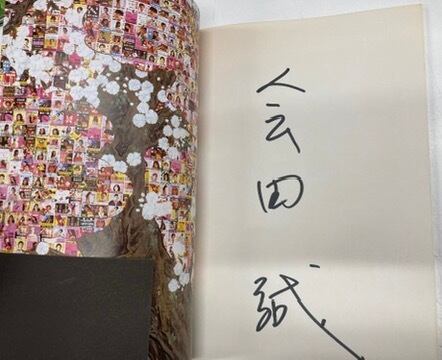 会田誠